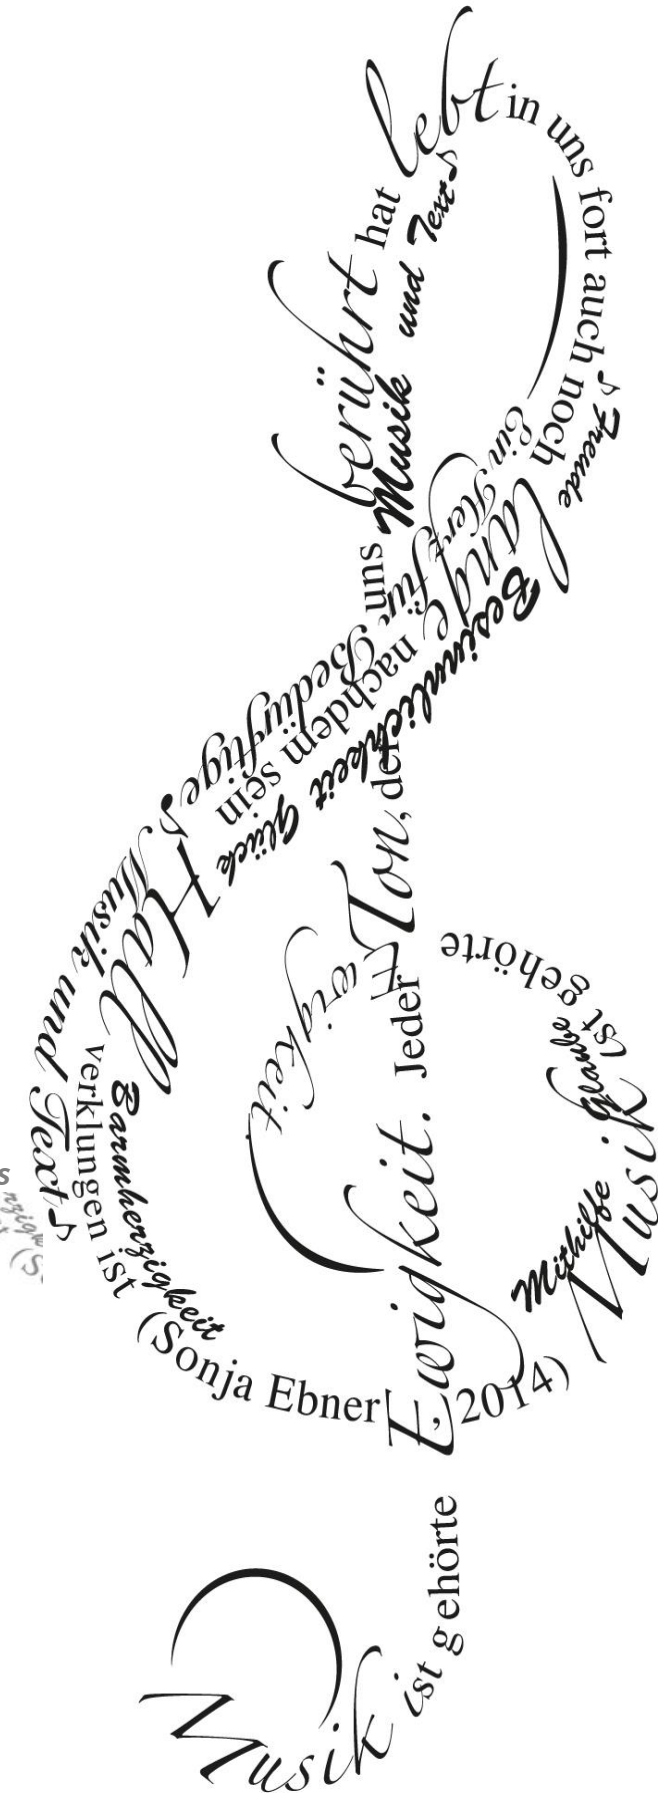 Musik ist gehörte
Ewigkeit. Jeder Ton, der
uns berührt hat lebt in uns fort auch noch
lange nachdem sein Hall verklungen ist
(Sonja Ebner, 2014)
Musik ist gehörte
Ewigkeit.
Musik und Text♪
Ein Herz für Bedürftige♪
Musik und Text♪
♪Freude
Besinnlichkeit Glück
Barmherzigkeit
Mithilfe
Glaube